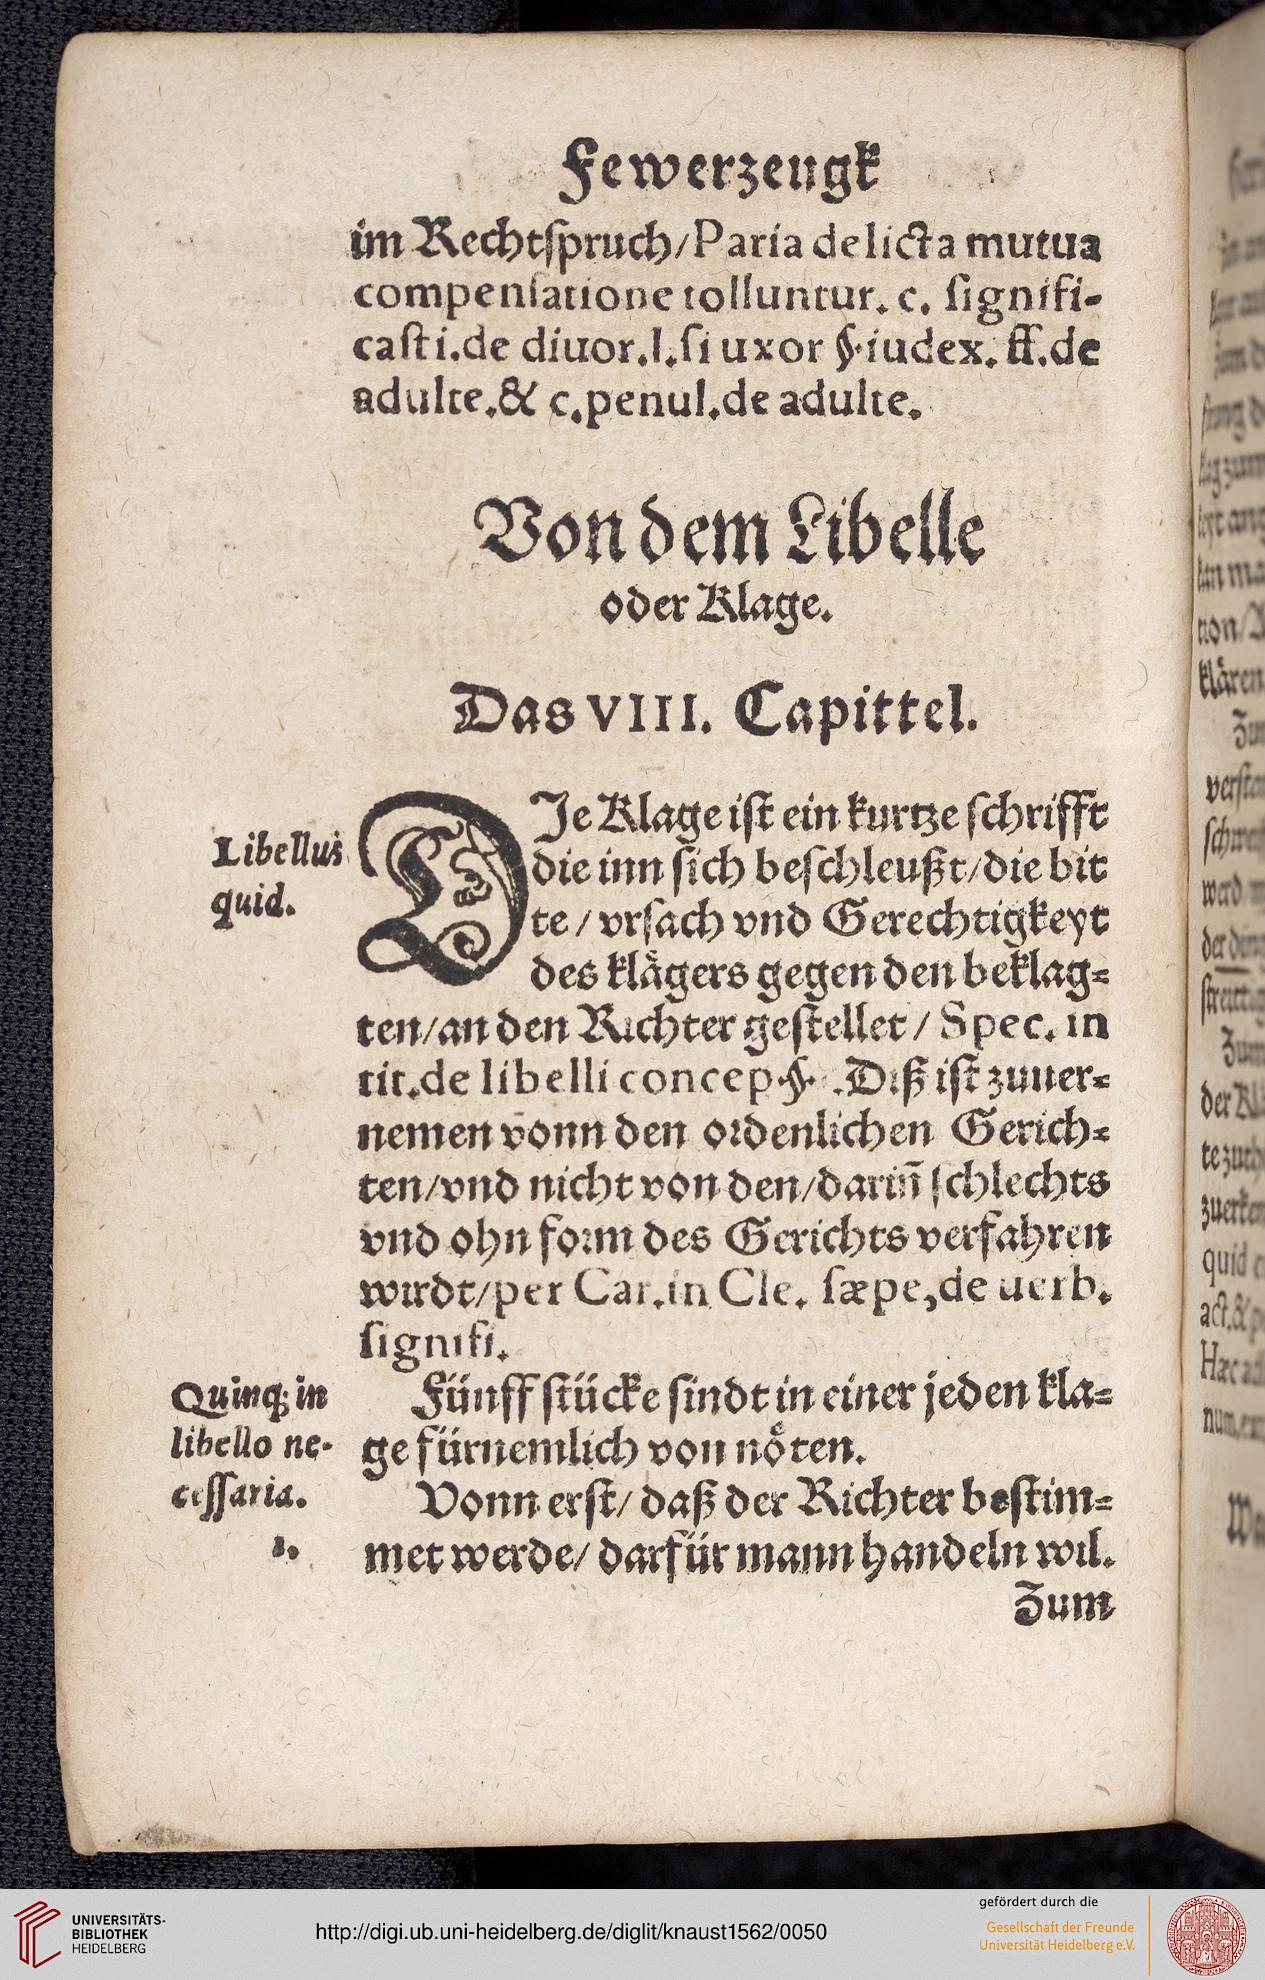 Fewerzeugk
im Rechtſpruch/Paria delicta mutua
compenſatione tolluntur. c. ſignifi-
caſti.de diuor.l.ſi uxor §.iudex. ff.de
adulte.& c.penul.de adulte.
Von dem Libelle
oder Klage.
Das VIII. Capittel.
Libellus
quid.
DJe Klage iſt ein kurtze ſchrifft
die inn ſich beſchleußt/die bit
te / vrſach vnd Gerechtigkeyt
des klaͤgers gegen den beklag⸗
ten/an den Richter geſtellet / Spec. in
tit.de libelli concep.§. .Diß iſt zuuer⸗
nemen vonn den ordenlichen Gerich⸗
ten/vnd nicht von den/darin̄ ſchlechts
vnd ohn form des Gerichts verfahren
wirdt/per Car.in Cle. ſæpe,de uerb.
ſignifi.
Quinq; in
libello ne-
ceſſaria.
1.
Fünff ſtücke ſindt in einer jeden kla⸗
ge fürnemlich von noͤten.
Vonn erſt/ daß der Richter beſtim⸗
met werde/ darfür mann handeln wil.
Zum
UNIVERSITÄTS-
BIBLIOTHEK
HEIDELBERG
http://digi.ub.uni-heidelberg.de/diglit/knaust1562/0050
gefördert durch die
Gesellschaft der Freunde
Universität Heidelberg e.V.